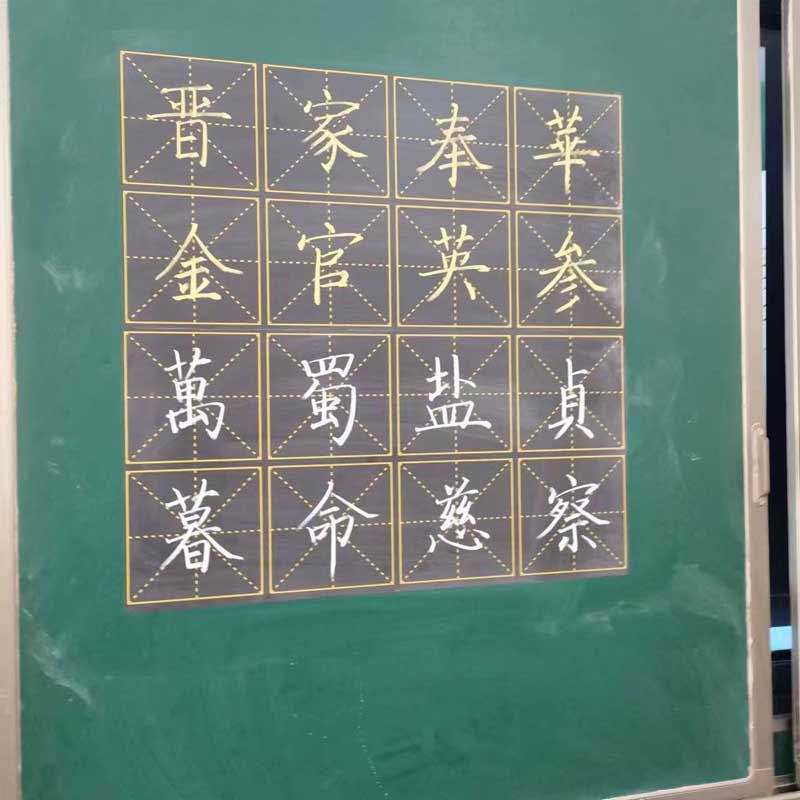 晋家奉華
金官英参
萬蜀盐貞
暮命慈察